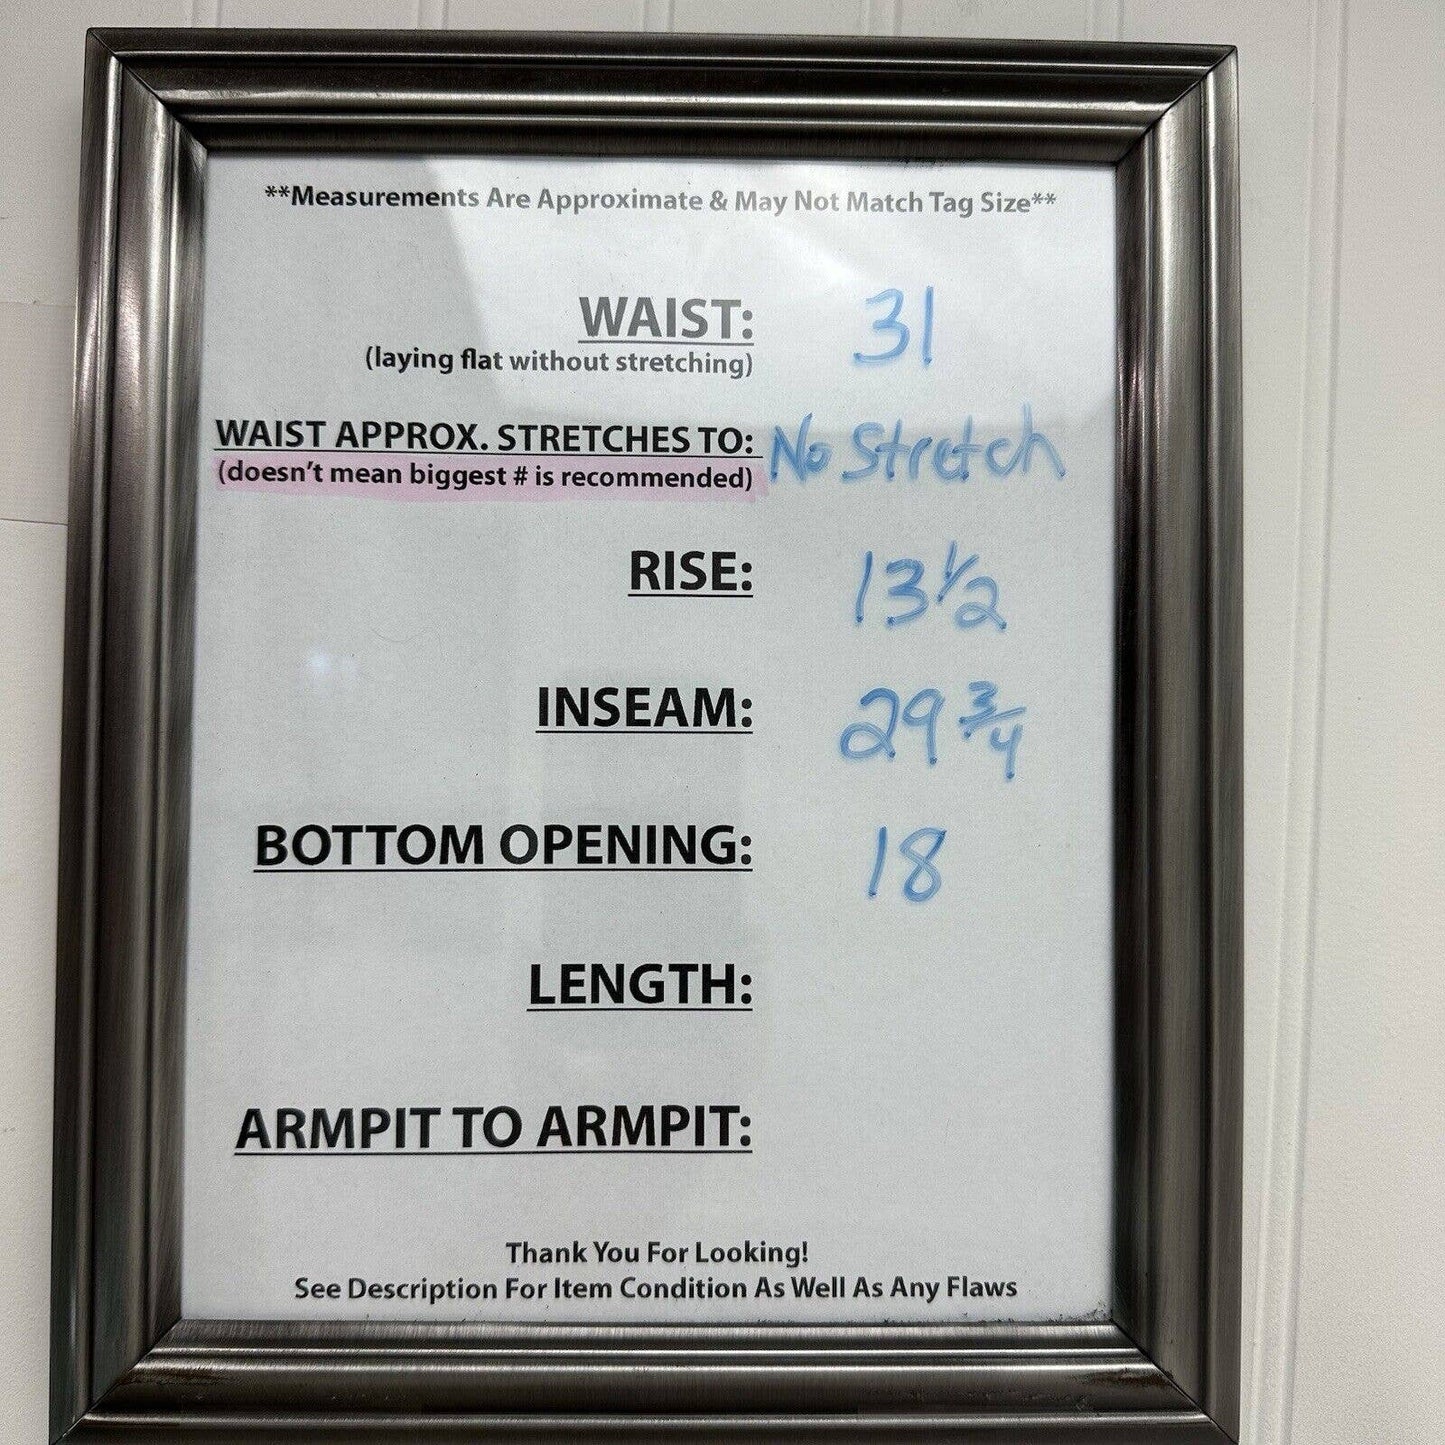 **Measurements Are Approximate & May Not Match Tag Size**
WAIST: 31
(laying flat without stretching)
WAIST APPROX. STRETCHES TO: No Stretch
(doesn't mean biggest # is recommended)
RISE: 13 1/2
INSEAM: 29 3/4
BOTTOM OPENING: 18
LENGTH:
ARMPIT TO ARMPIT:
Thank You For Looking!
See Description For Item Condition As Well As Any Flaws